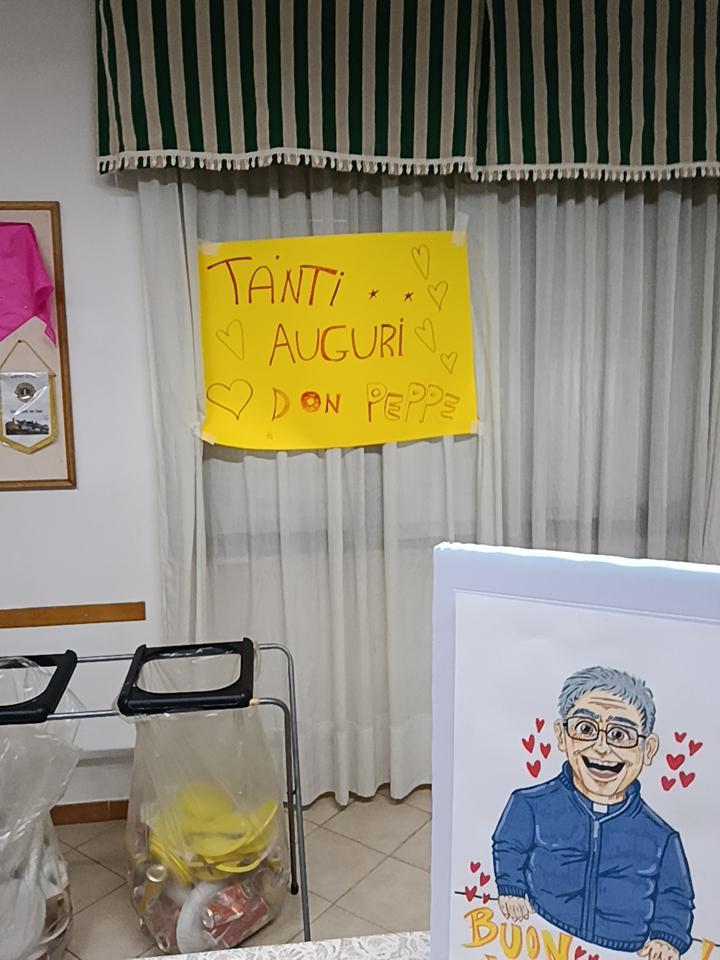 TANTI
AUGURI
DON PEPPE
BUON